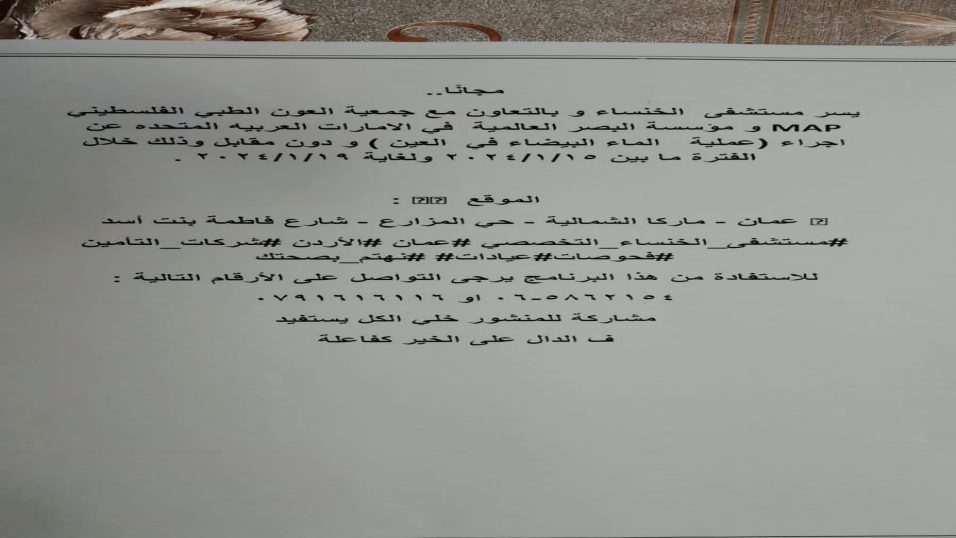 مجانًا..
يسر مستشفى الخنساء و بالتعاون مع جمعية العون الطبي الفلسطيني
MAP و مؤسسة البصر العالمية في الامارات العربيه المتحده عن
اجراء (عملية الماء البيضاء في العين ) و دون مقابل وذلك خلال
الفترة ما بين ٢٠٢٤/١/١٥ ولغاية ٢٠٢٤/١/١٩ .
الموقع :
عمان - ماركا الشمالية - حي المزارع - شارع فاطمة بنت أسد
#مستشفى_الخنساء_التخصصي #عمان #الأردن #شركات_التأمين
#فحوصات#عيادات# #نهتم_بصحتك
للاستفادة من هذا البرنامج يرجى التواصل على الأرقام التالية :
٠٦-٥٨٦٢١٥٤ او ٠٧٩١٦١٦١١٦
مشاركة للمنشور خلي الكل يستفيد
ف الدال على الخير كفاعلة